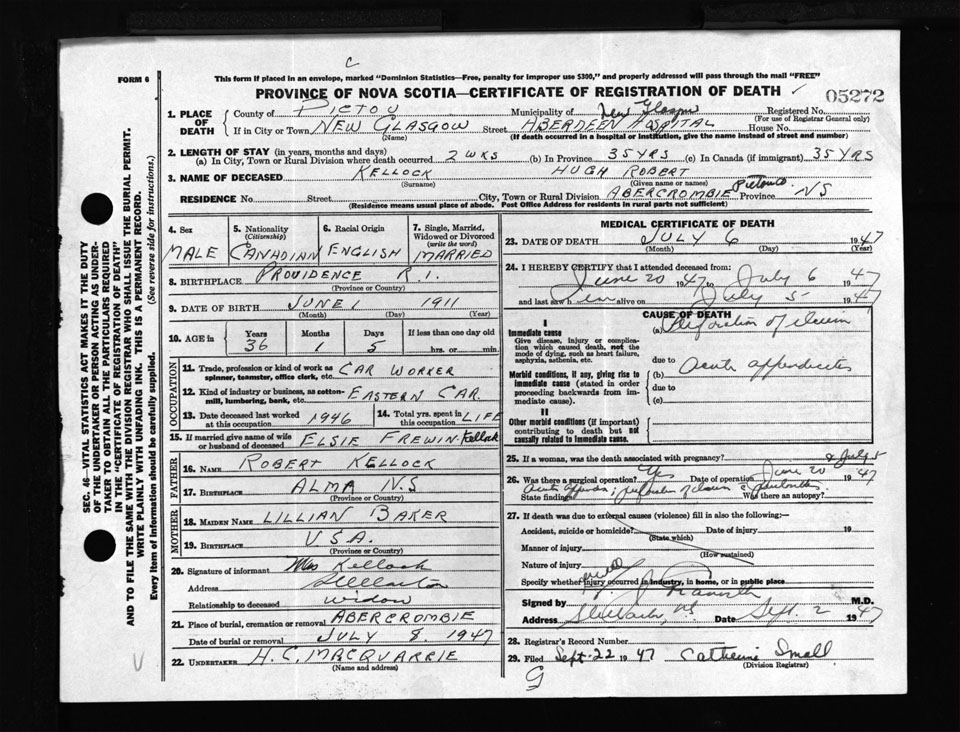 C
FORM 6
This form if placed in an envelope, marked "Dominion Statistics—Free, penalty for improper use $300," and properly addressed will pass through the mail "FREE"
PROVINCE OF NOVA SCOTIA—CERTIFICATE OF REGISTRATION OF DEATH
05272
1. PLACE OF DEATH
County of PICTOU Municipality of New Glasgow Registered No.
(For use of Registrar General only)
If in City or Town NEW GLASGOW Street ABERDEEN HOSPITAL House No.
(Name) (If death occurred in a hospital or institution, give the name instead of street and number)
2. LENGTH OF STAY (in years, months and days)
(a) In City, Town or Rural Division where death occurred 2 WKS (b) In Province 35 YRS (c) In Canada (if immigrant) 35 YRS
3. NAME OF DECEASED KELLOCK HUGH ROBERT
(Surname) (Given name or names)
RESIDENCE No. Street City, Town or Rural Division ABERCROMBIE Pictou Co Province NS
(Residence means usual place of abode. Post Office Address for residents in rural parts not sufficient)
4. Sex 5. Nationality (Citizenship) 6. Racial Origin 7. Single, Married, Widowed or Divorced (write the word)
MALE CANADIAN ENGLISH MARRIED
8. BIRTHPLACE PROVIDENCE R.I.
(Province or Country)
9. DATE OF BIRTH JUNE 1 1911
(Month) (Day) (Year)
10. AGE in Years Months Days If less than one day old
36 1 5 hrs. or min.
OCCUPATION
11. Trade, profession or kind of work as spinner, teamster, office clerk, etc. CAR WORKER
12. Kind of industry or business, as cotton-mill, lumbering, bank, etc. EASTERN CAR
13. Date deceased last worked at this occupation 1946 14. Total yrs. spent in this occupation LIFE
15. If married give name of wife or husband of deceased ELSIE FREWIN Kellock
FATHER
16. NAME ROBERT KELLOCK
17. BIRTHPLACE ALMA N.S
(Province or Country)
MOTHER
18. MAIDEN NAME LILLIAN BAKER
19. BIRTHPLACE USA.
(Province or Country)
20. Signature of informant Mrs Kellock
Address Stellarton
Relationship to deceased widow
21. Place of burial, cremation or removal ABERCROMBIE
Date of burial or removal JULY 8, 1947
22. UNDERTAKER H.C. MACQUARRIE
(Name and address)
MEDICAL CERTIFICATE OF DEATH
23. DATE OF DEATH JULY 6 1947
(Month) (Day) (Year)
24. I HEREBY CERTIFY that I attended deceased from:
June 20 1947 to July 6 1947
and last saw him alive on July 5 1947
CAUSE OF DEATH
I
Immediate cause
Give disease, injury or complication which caused death, not the mode of dying, such as heart failure, asphyxia, asthenia, etc.
(a) Perforation of ileum
due to
Morbid conditions, if any, giving rise to immediate cause (stated in order proceeding backwards from immediate cause).
(b) Acute appendicitis
due to
(c)
II
Other morbid conditions (if important) contributing to death but not causally related to immediate cause.
25. If a woman, was the death associated with pregnancy?
& July 5
26. Was there a surgical operation? Yes Date of operation June 20 1947
State findings Acute append; perforation of ileum & peritonitis Was there an autopsy?
27. If death was due to external causes (violence) fill in also the following:—
Accident, suicide or homicide? Date of injury 19
(State which)
Manner of injury
(How sustained)
Nature of injury
Specify whether injury occurred in industry, in home, or in public place
Signed by M.D.
Address Stellarton, NS Date Sept. 2 1947
28. Registrar's Record Number
29. Filed Sept 22 1947 Catherine Small
(Division Registrar)
G
V
SEC. 46—VITAL STATISTICS ACT MAKES IT THE DUTY
OF THE UNDERTAKER OR PERSON ACTING AS UNDERTAKER TO OBTAIN ALL THE PARTICULARS REQUIRED
IN THE "CERTIFICATE OF REGISTRATION OF DEATH"
AND TO FILE THE SAME WITH THE DIVISION REGISTRAR WHO SHALL ISSUE THE BURIAL PERMIT.
WRITE PLAINLY WITH UNFADING INK. THIS IS A PERMANENT RECORD.
Every item of information should be carefully supplied. (See reverse side for instructions.)